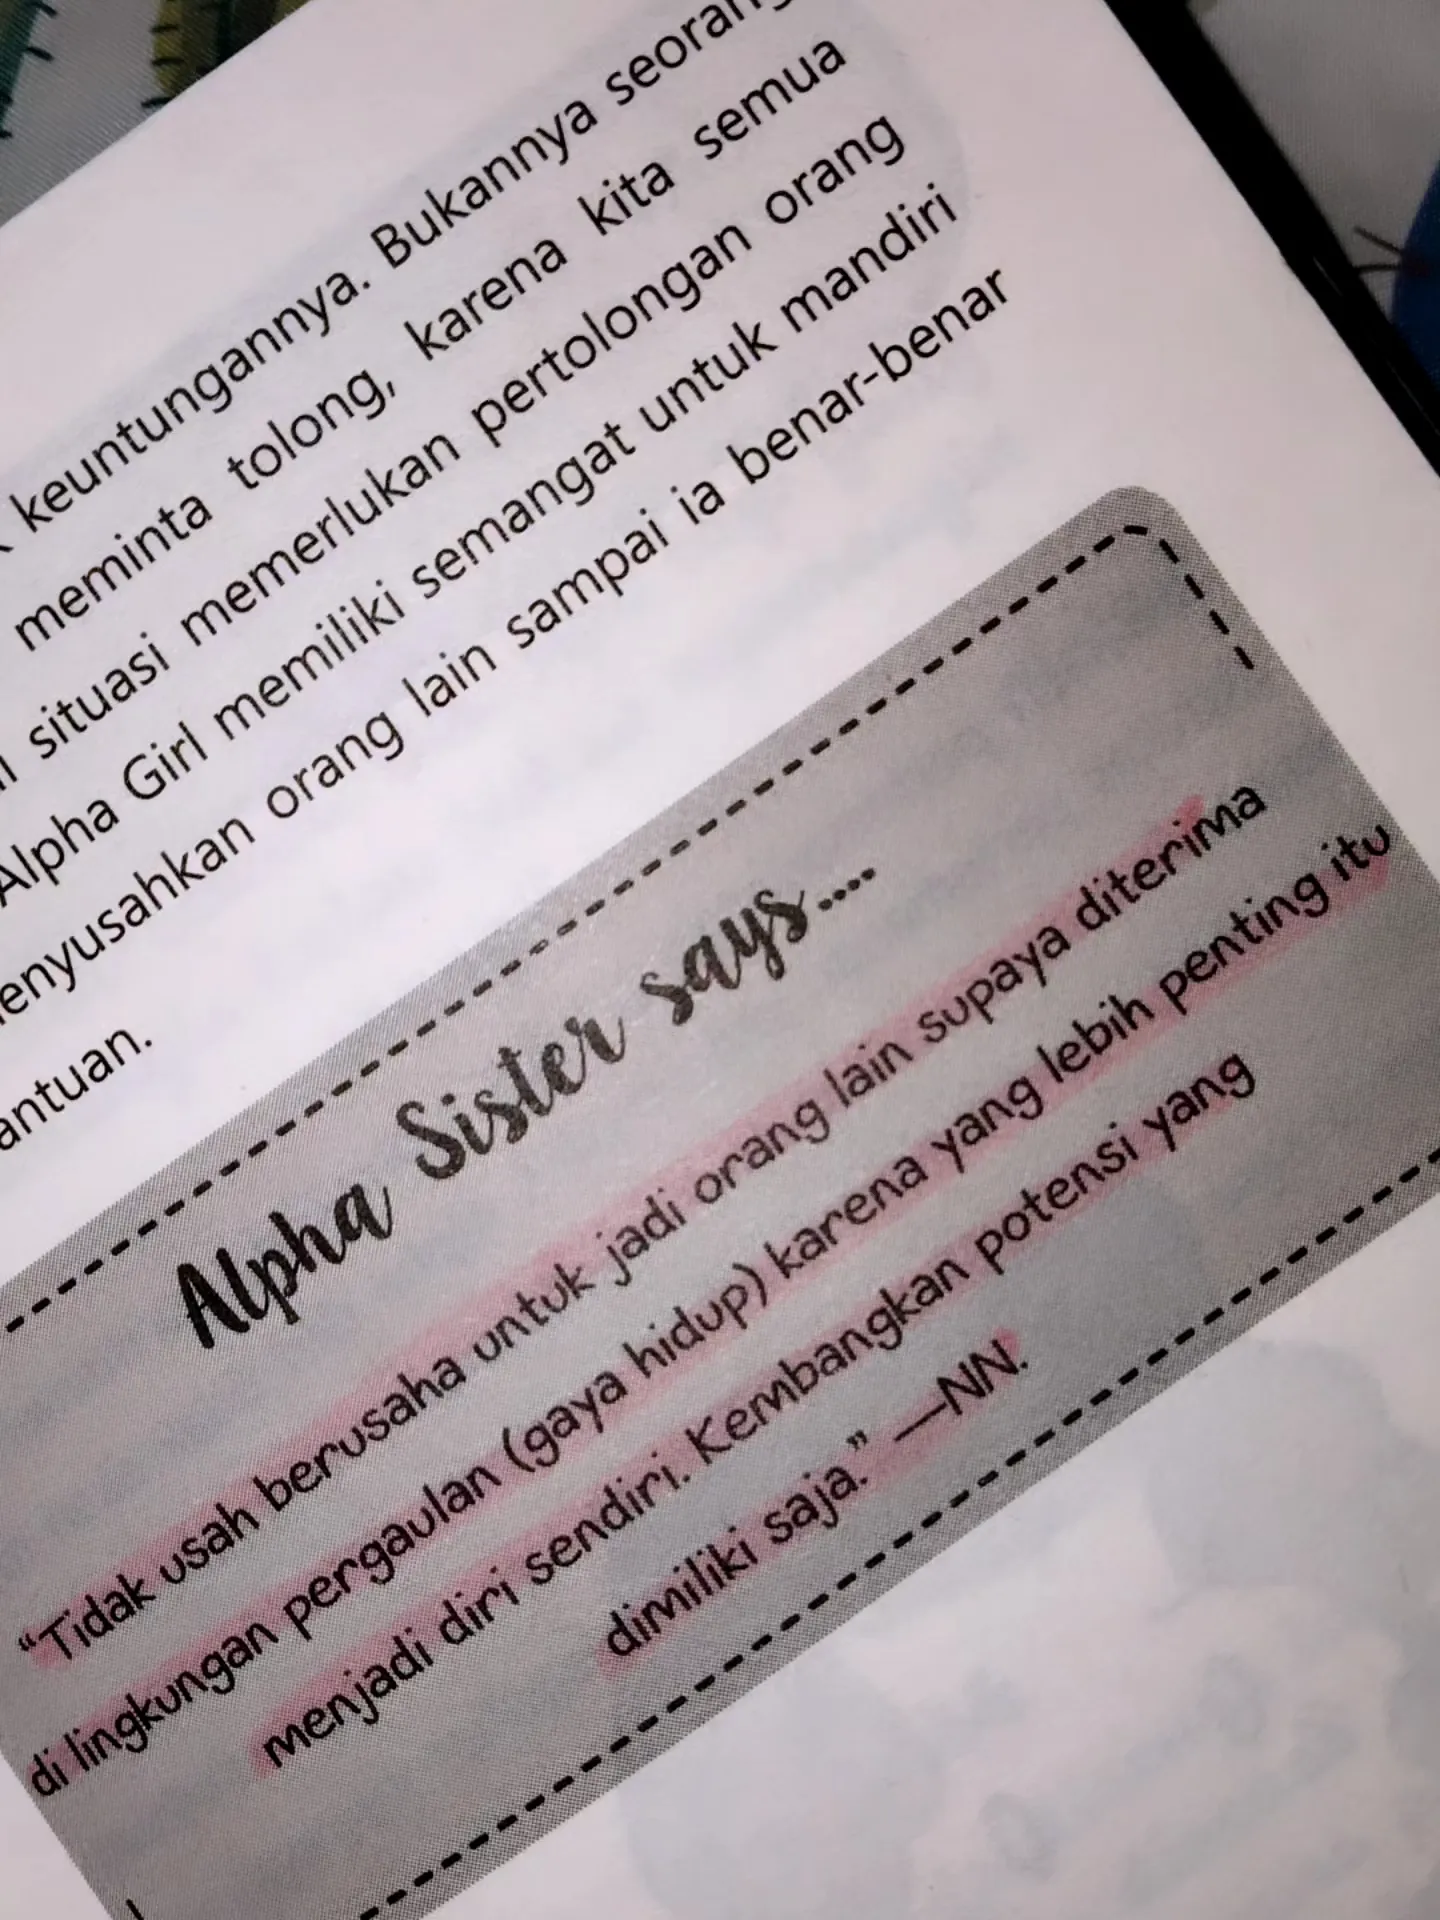 keuntungannya. Bukannya
meminta tolong, karena kita semua
situasi memerlukan pertolongan orang
Alpha Girl memiliki semangat untuk mandiri
orang lain sampai ia benar-benar
Alpha Sister says....
“Tidak usah berusaha untuk jadi orang lain supaya diterima
di lingkungan pergaulan (gaya hidup) karena yang lebih penting itu
menjadi diri sendiri. Kembangkan potensi yang
dimiliki saja.” —NN.